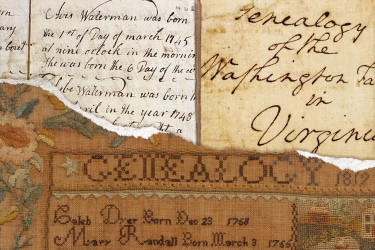 Chvis Waterman was born
the 1st Day of march 1745
at nine oclock in the mornin
She was born the 6 Day of the w
be Waterman was born
ril in the year 1748
at a
Genealogy
of the
Washington Fa
in
Virginia
GENEALOGY 1812
Caleb Dyer Born Dec 23 1768
Mary Randall Born March 3 1766